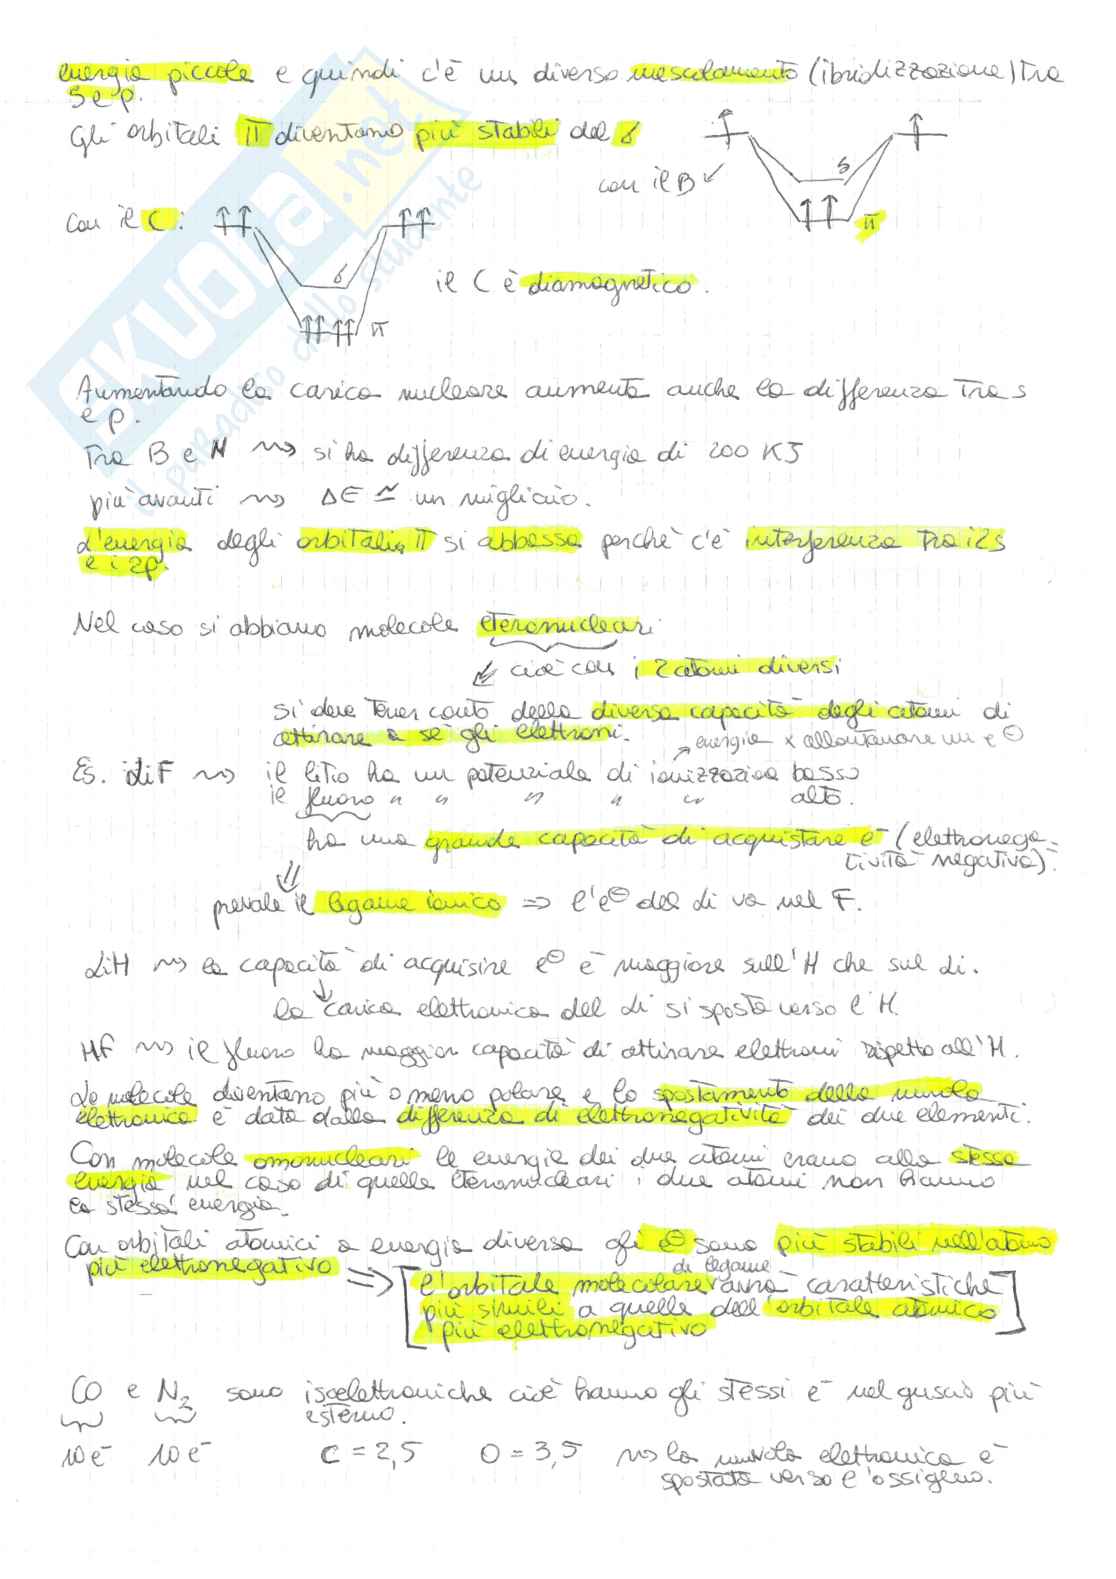 energia piccola e quindi c'è un diverso mescolamento (ibridizzazione) tra
s e p.
Gli orbitali π diventano più stabili del σ
con il B
σ
π
con il C:
σ
π
il C è diamagnetico.
Aumentando la carica nucleare aumenta anche la differenza tra s
e p.
Tra B e N ⇝ si ha differenza di energia di 200 KJ
più avanti ⇝ ΔE ≃ un migliaio.
L'energia degli orbitali π si abbassa perché c'è interferenza tra i 2s
e i 2p.
Nel caso si abbiano molecole eteronucleari
↙ cioè con i 2 atomi diversi
si deve tener conto della diversa capacità degli atomi di
attirare a sé gli elettroni.
↗ energia x allontanare un e⊖
Es. LiF ⇝ il litio ha un potenziale di ionizzazione basso
il fluoro " " " " " alto.
ha una grande capacità di acquistare e⁻ (elettronega-
tività negativa).
⇓
prevale il legame ionico ⇒ l'e⊖ del Li va nel F.
LiH ⇝ la capacità di acquisire e⊖ è maggiore sull'H che sul Li.
↓
la carica elettronica del Li si sposta verso l'H.
HF ⇝ il fluoro ha maggior capacità di attirare elettroni rispetto all'H.
Le molecole diventano più o meno polare e lo spostamento della nuvola
elettronica è data dalla differenza di elettronegatività dei due elementi.
Con molecole omonucleari le energie dei due atomi erano alla stessa
energia nel caso di quelle eteronucleari i due atomi non hanno
la stessa energia.
Con orbitali atomici a energia diversa gli e⊖ sono più stabili nell'atomo
più elettronegativo ⇒
di legame
[l'orbitale molecolare avrà caratteristiche
più simili a quelle dell'orbitale atomico
più elettronegativo]
CO e N₂ sono isoelettroniche cioè hanno gli stessi e⁻ nel guscio più
esterno.
10 e⁻ 10 e⁻ C = 2,5 O = 3,5 ⇝ la nuvola elettronica è
spostata verso l'ossigeno.
SKUOLA.net
il paradiso dello studente